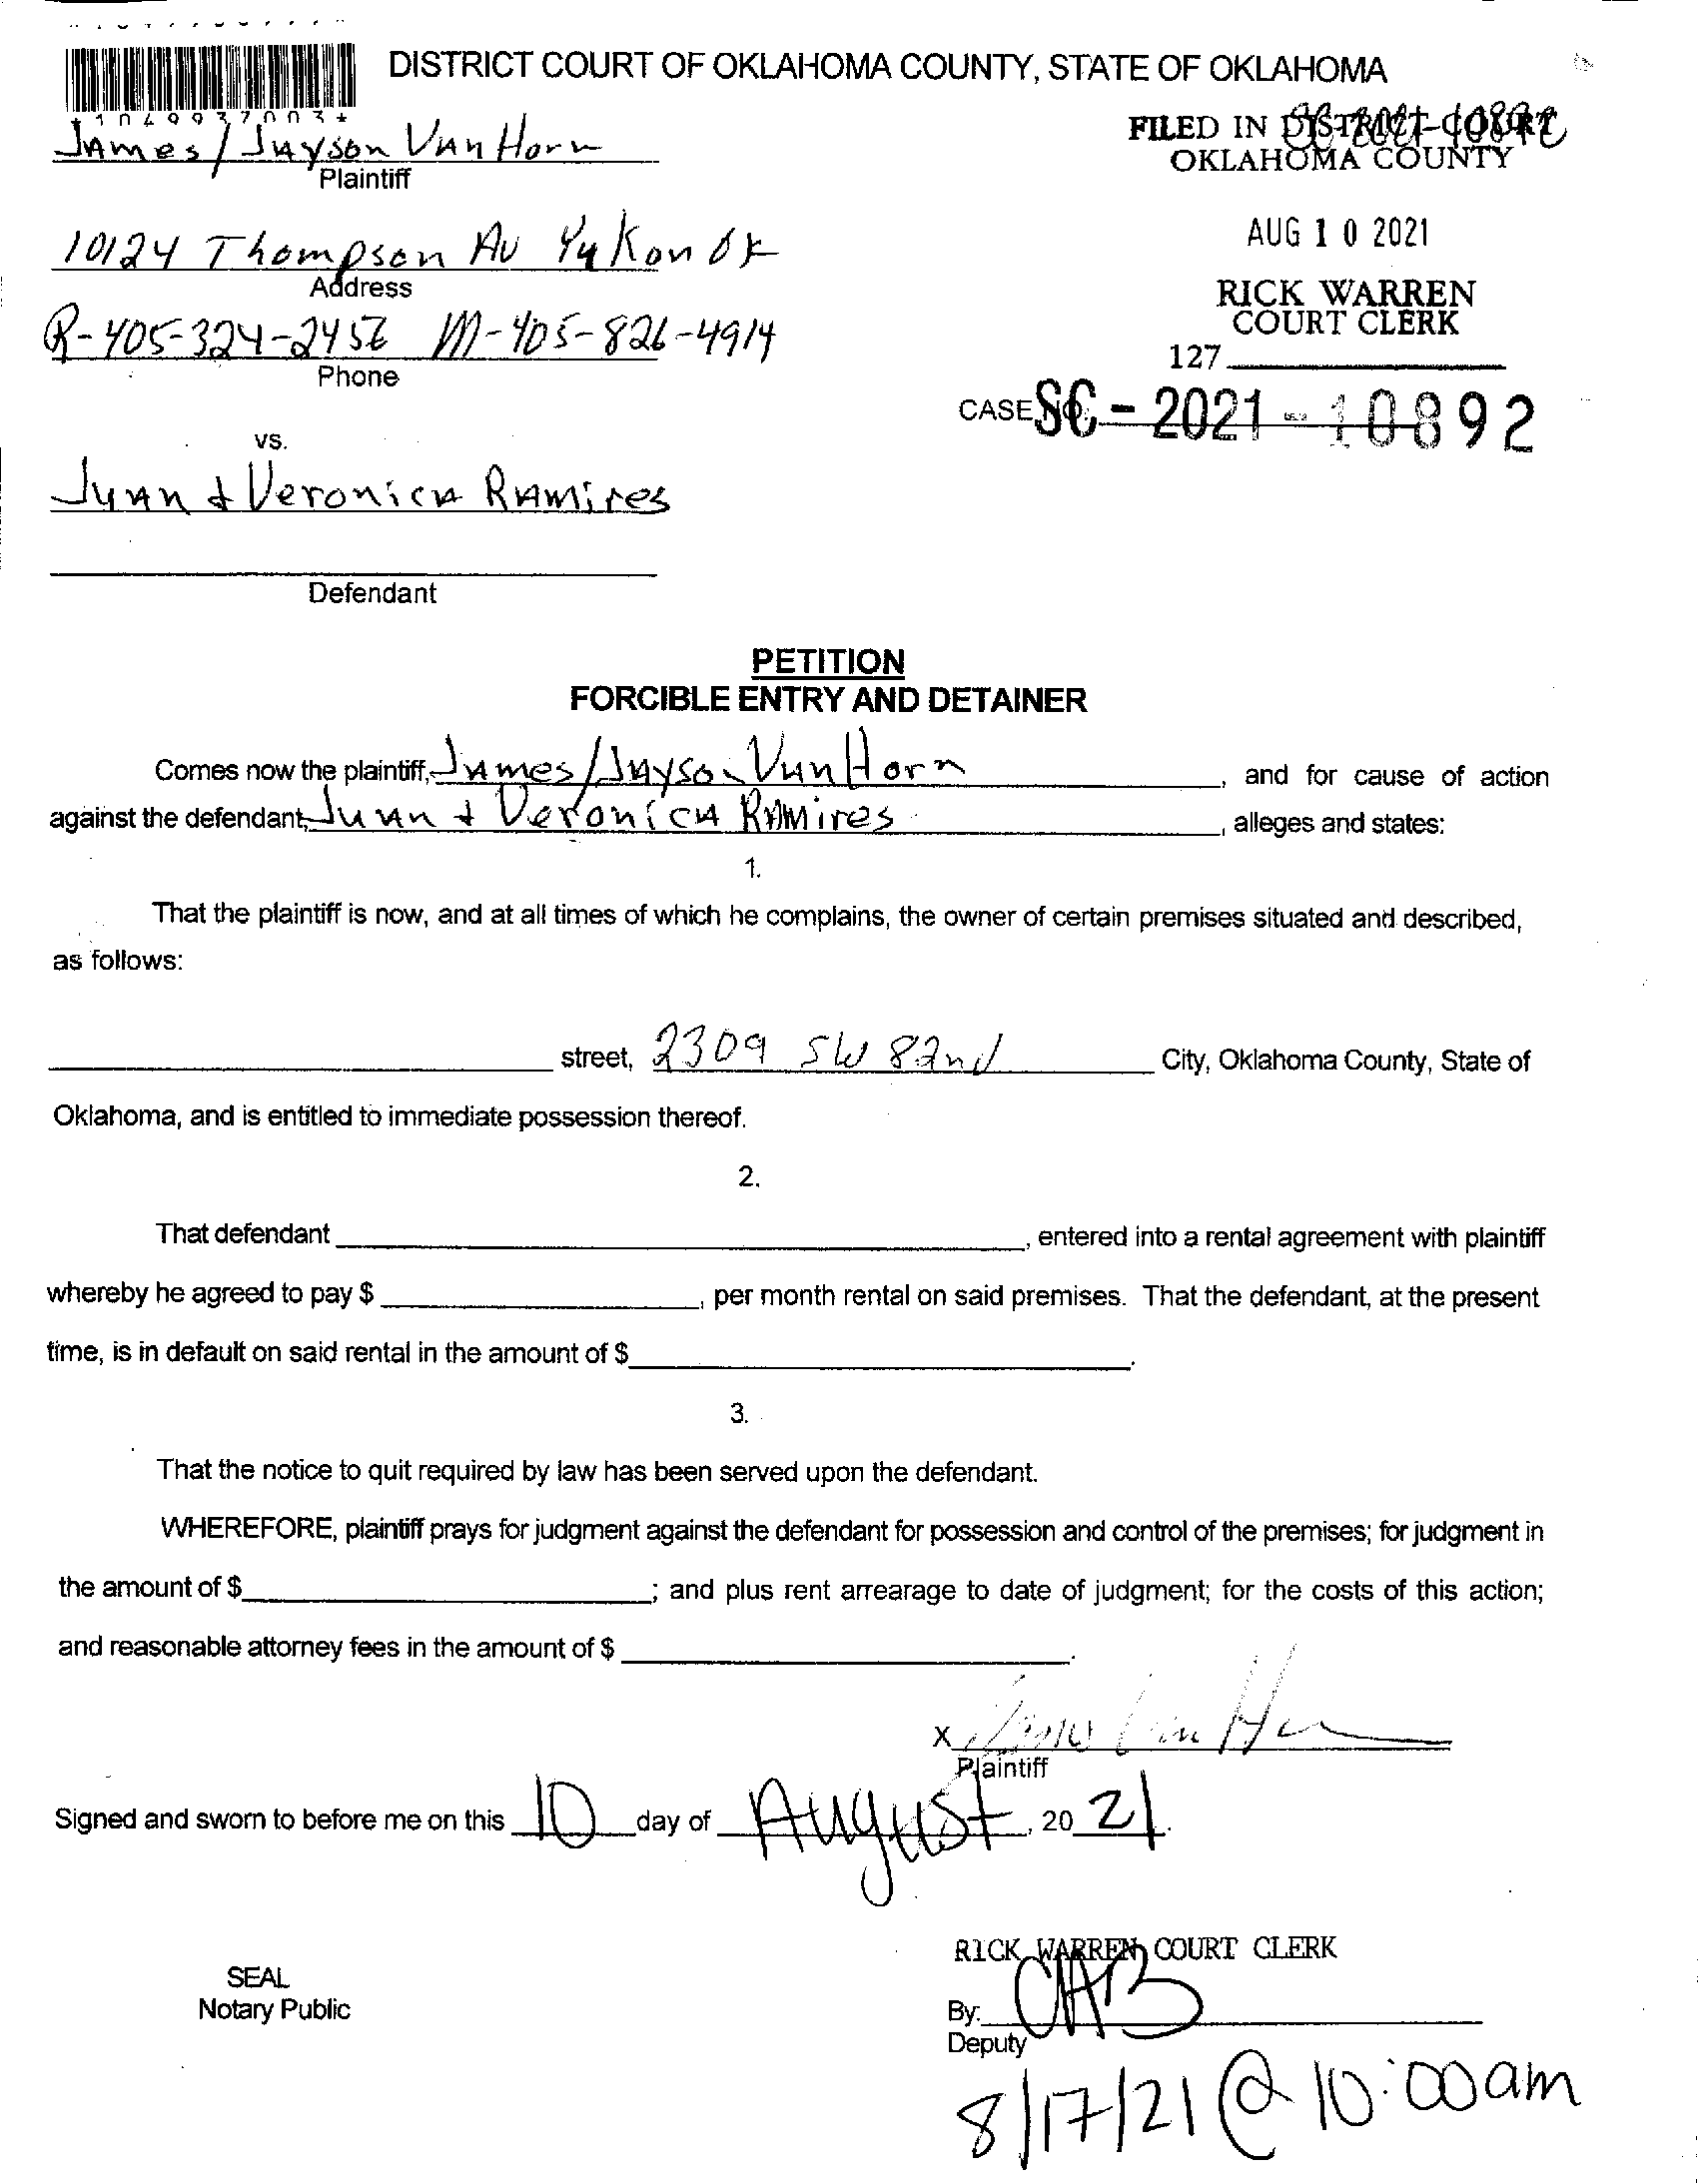 DISTRICT COURT OF OKLAHOMA COUNTY, STATE OF OKLAHOMA
*1049937003*
James/Jayson VanHorn
Plaintiff
FILED IN DISTRICT COURT
OKLAHOMA COUNTY
10124 Thompson Av Yukon OK
Address
AUG 10 2021
RICK WARREN
COURT CLERK
127
R-405-324-2456 M-405-826-4914
Phone
CASE NO. SC-2021-10892
vs.
Juan & Veronica Ramires
Defendant
PETITION
FORCIBLE ENTRY AND DETAINER
Comes now the plaintiff, James/Jayson VanHorn, and for cause of action
against the defendant, Juan & Veronica Ramires, alleges and states:
1.
That the plaintiff is now, and at all times of which he complains, the owner of certain premises situated and described,
as follows:
street, 2309 SW 82nd City, Oklahoma County, State of
Oklahoma, and is entitled to immediate possession thereof.
2.
That defendant , entered into a rental agreement with plaintiff
whereby he agreed to pay $ , per month rental on said premises. That the defendant, at the present
time, is in default on said rental in the amount of $ .
3.
That the notice to quit required by law has been served upon the defendant.
WHEREFORE, plaintiff prays for judgment against the defendant for possession and control of the premises; for judgment in
the amount of $ ; and plus rent arrearage to date of judgment; for the costs of this action;
and reasonable attorney fees in the amount of $ .
X
Plaintiff
Signed and sworn to before me on this 10 day of August, 20 21.
RICK WARREN COURT CLERK
SEAL
Notary Public
By: CAB
Deputy
8/17/21 @ 10:00am